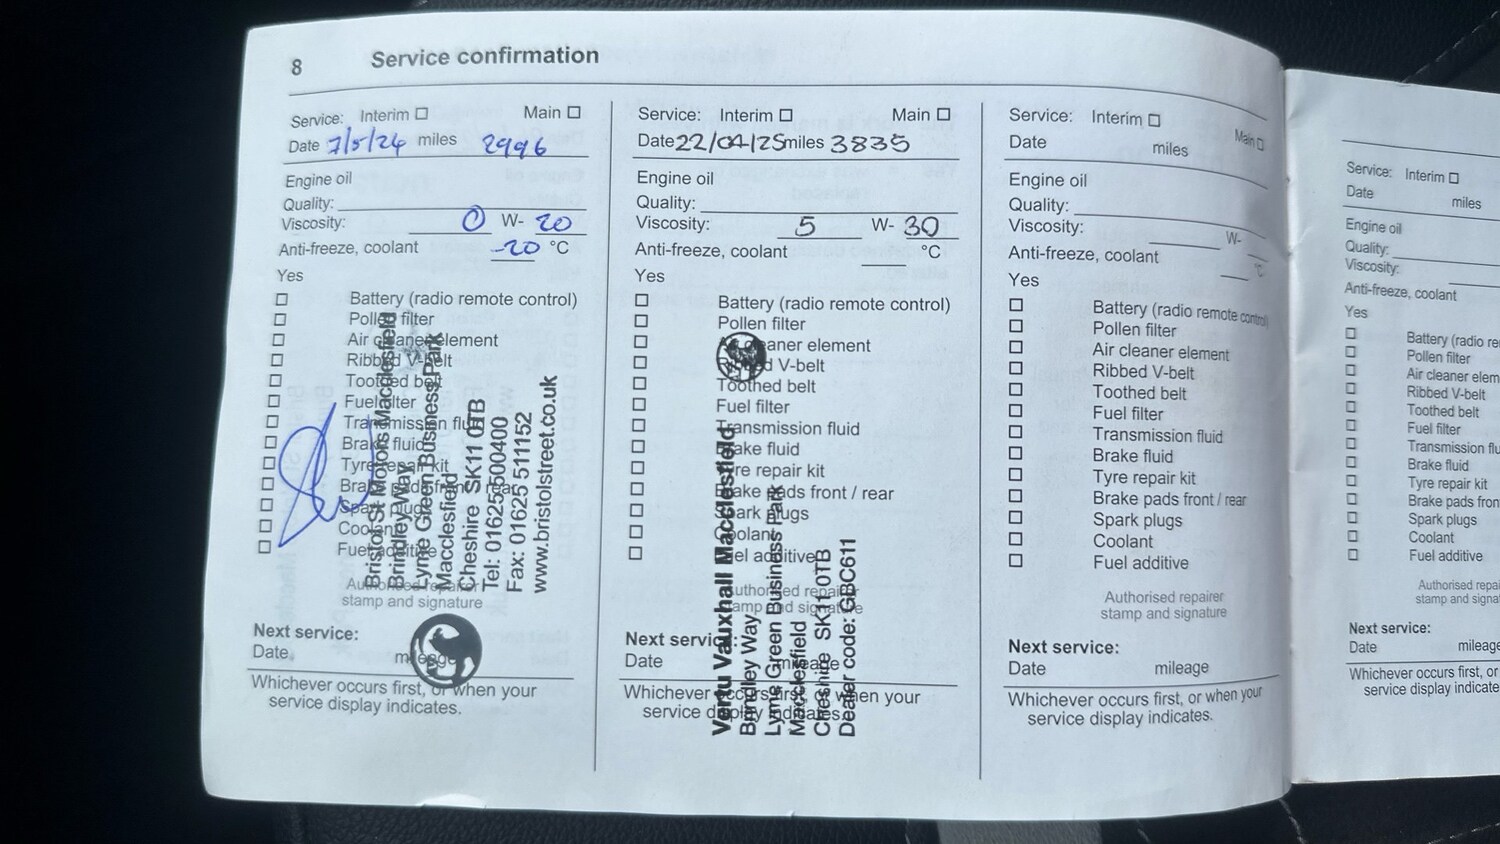 8 Service confirmation
Service: Interim Main
Date 7/5/24 miles 2996
Engine oil
Quality:
Viscosity: 0 W- 20
Anti-freeze, coolant -20 °C
Yes
Battery (radio remote control)
Pollen filter
Air cleaner element
Ribbed V-belt
Toothed belt
Fuel filter
Transmission fluid
Brake fluid
Tyre repair kit
Brake pads front / rear
Spark plugs
Coolant
Fuel additive
Authorised repairer
stamp and signature
Bristol St Motors Macclesfield
Brindley Way
Lyme Green Business Park
Macclesfield
Cheshire SK11 0TB
Tel: 01625 500400
Fax: 01625 511152
www.bristolstreet.co.uk
Next service:
Date mileage
Whichever occurs first, or when your
service display indicates.
Service: Interim Main
Date 22/04/25 miles 3835
Engine oil
Quality:
Viscosity: 5 W- 30
Anti-freeze, coolant °C
Yes
Battery (radio remote control)
Pollen filter
Air cleaner element
Ribbed V-belt
Toothed belt
Fuel filter
Transmission fluid
Brake fluid
Tyre repair kit
Brake pads front / rear
Spark plugs
Coolant
Fuel additive
Authorised repairer
stamp and signature
Vertu Vauxhall Macclesfield
Brindley Way
Lyme Green Business Park
Macclesfield
Cheshire SK11 0TB
Dealer code: GBC611
Next service:
Date mileage
Whichever occurs first, or when your
service display indicates.
Service: Interim Main
Date miles
Engine oil
Quality:
Viscosity: W-
Anti-freeze, coolant °C
Yes
Battery (radio remote control)
Pollen filter
Air cleaner element
Ribbed V-belt
Toothed belt
Fuel filter
Transmission fluid
Brake fluid
Tyre repair kit
Brake pads front / rear
Spark plugs
Coolant
Fuel additive
Authorised repairer
stamp and signature
Next service:
Date mileage
Whichever occurs first, or when your
service display indicates.
Service: Interim
Date miles
Engine oil
Quality:
Viscosity:
Anti-freeze, coolant
Yes
Battery (radio re
Pollen filter
Air cleaner elem
Ribbed V-belt
Toothed belt
Fuel filter
Transmission flu
Brake fluid
Tyre repair kit
Brake pads fron
Spark plugs
Coolant
Fuel additive
Authorised repai
stamp and signa
Next service:
Date mileage
Whichever occurs first, or
service display indicate